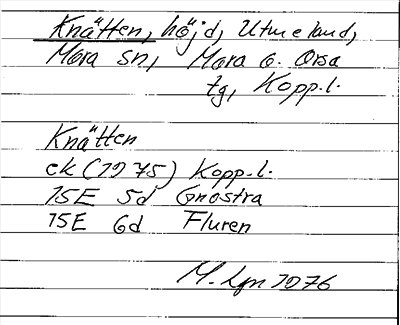 Knätten, höjd, Utmeland,
Mora sn, Mora o. Orsa
tg, Kopp.l.
Knätten
ek (1975) Kopp.l.
15E 5d Gnostra
15E 6d Fluren
M. 1976